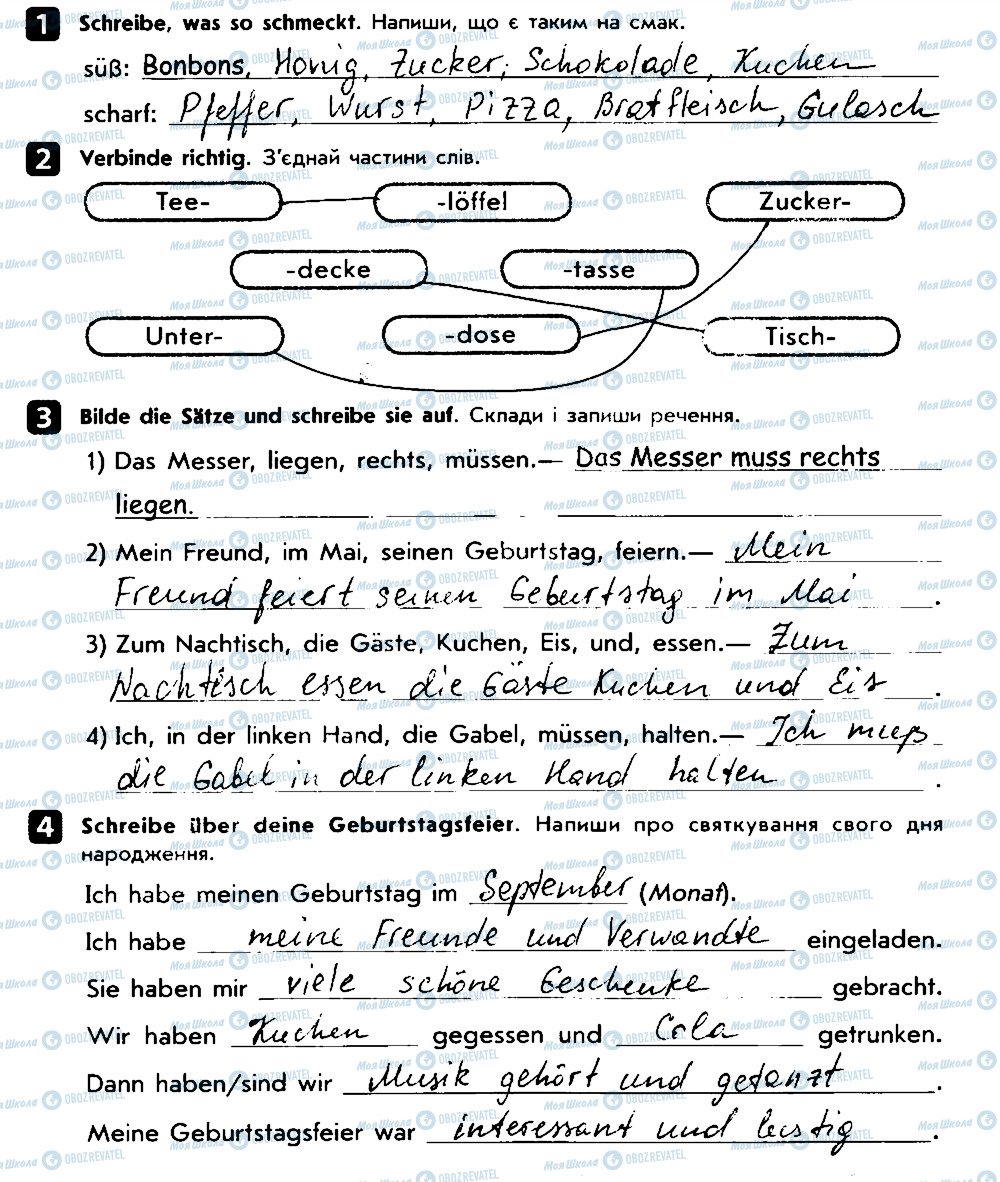 1 Schreibe, was so schmeckt. Напиши, що є таким на смак.
süß: Bonbons, Honig, Zucker, Schokolade, Kuchen
scharf: Pfeffer, Wurst, Pizza, Bratfleisch, Gulasch
2 Verbinde richtig. З'єднай частини слів.
Tee- -löffel Zucker-
-decke -tasse
Unter- -dose Tisch-
3 Bilde die Sätze und schreibe sie auf. Склади і запиши речення.
1) Das Messer, liegen, rechts, müssen.— Das Messer muss rechts
liegen.
2) Mein Freund, im Mai, seinen Geburtstag, feiern.— Mein
Freund feiert seinen Geburtstag im Mai.
3) Zum Nachtisch, die Gäste, Kuchen, Eis, und, essen.— Zum
Nachtisch essen die Gäste Kuchen und Eis.
4) Ich, in der linken Hand, die Gabel, müssen, halten.— Ich muß
die Gabel in der linken Hand halten.
4 Schreibe über deine Geburtstagsfeier. Напиши про святкування свого дня
народження.
Ich habe meinen Geburtstag im September (Monat).
Ich habe meine Freunde und Verwandte eingeladen.
Sie haben mir viele schöne Geschenke gebracht.
Wir haben Kuchen gegessen und Cola getrunken.
Dann haben/sind wir Musik gehört und getanzt.
Meine Geburtstagsfeier war interessant und lustig.